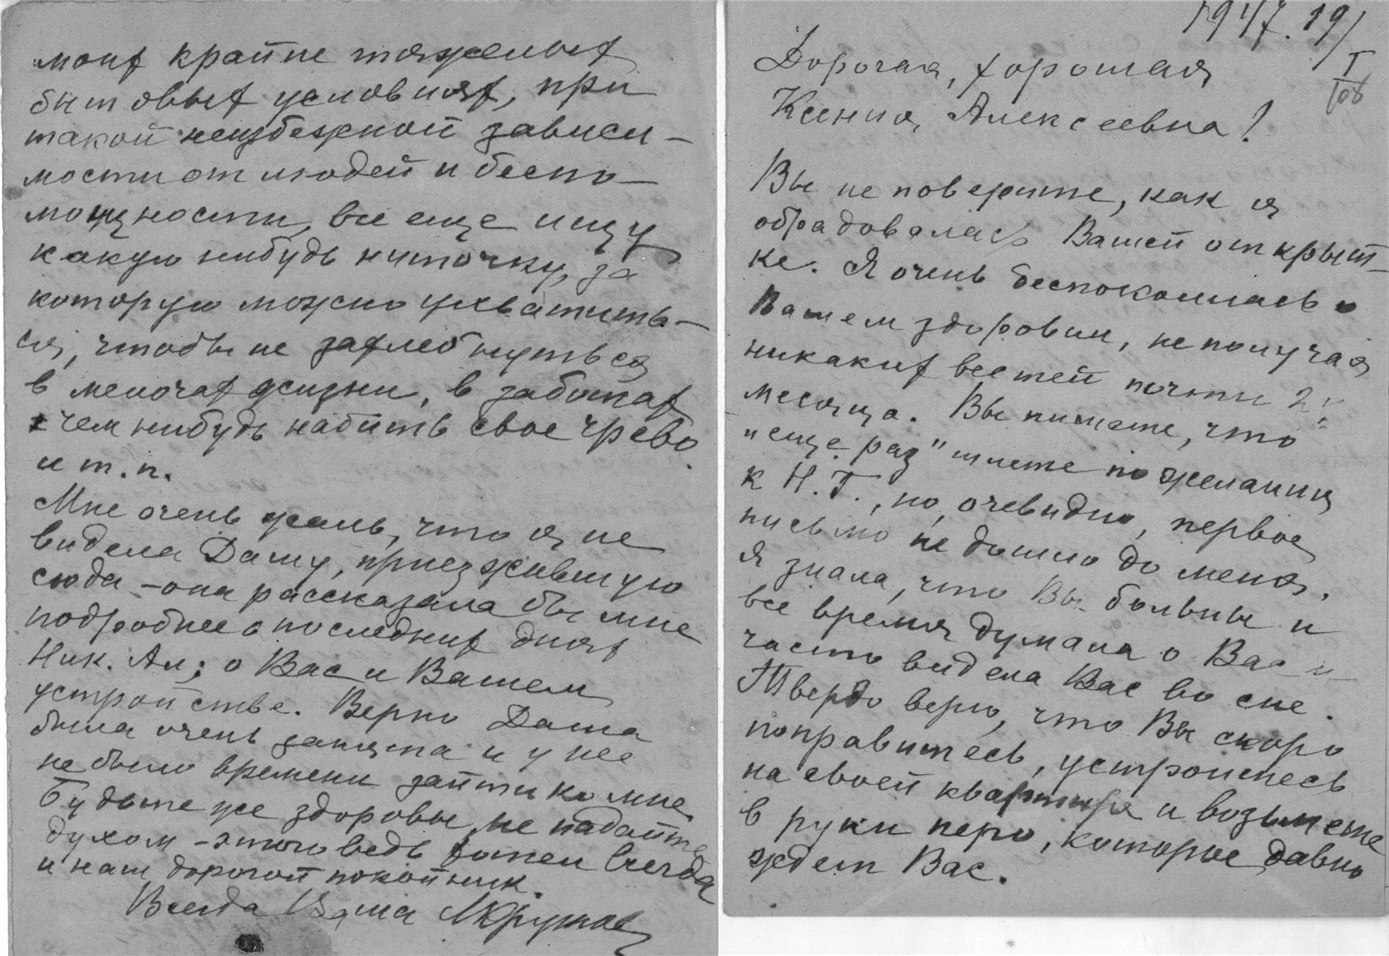 1947. 19/I
Дорогая, хорошая
Ксения Алексеевна!
Вы не поверите, как я
обрадовалась Вашей открыт-
ке. Я очень беспокоилась о
Вашем здоровии, не получая
никаких вестей почти 2
месяца. Вы пишете, что
"еще раз" шлете пожелания
к Н.Г., но, очевидно, первое
письмо не дошло до меня.
Я знала, что Вы больны и
все время думала о Вас и
часто видела Вас во сне.
Твердо верю, что Вы скоро
поправитесь, устроитесь
на своей квартире и возьмете
в руки перо, которое давно
ждет Вас.
моих крайне тяжелых
бытовых условиях, при
такой неизбежной зависи-
мости от людей и беспо-
мощности, все еще ищу
какую нибудь ниточку, за
которую можно ухватить-
ся, чтобы не захлебнуться
в мелочах жизни, в заботах
чем нибудь набить свое чрево
и т.п.
Мне очень жаль, что я не
видела Дашу, приезжавшую
сюда - она рассказала бы мне
подробнее о последних днях
Ник. Ал., о Вас и Вашем
устройстве. Верно Даша
была очень занята и у нее
не было времени зайти ко мне
Будьте же здоровы, не падайте
духом - этого ведь хотел всегда
и наш дорогой покойник.
Всегда Ваша